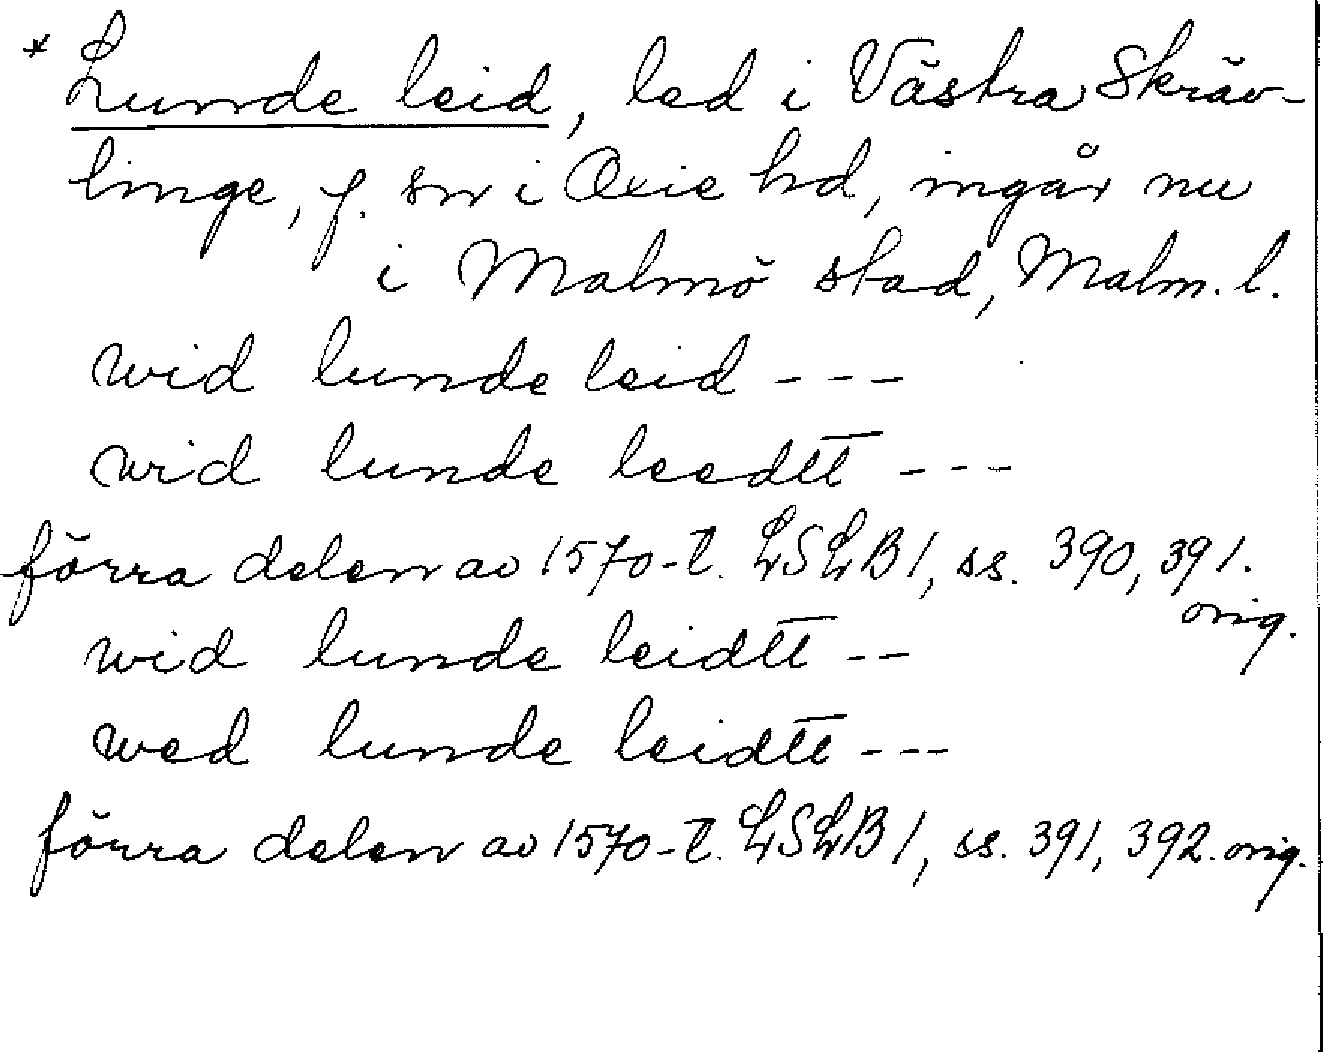 * Lunde leid, led i Västra Skräv-
linge, f. sn i Oxie hd, ingår nu
i Malmö stad, Malm. l.
wid lunde leid - - -
wid lunde leedtt - - -
förra delen av 1570-t. LSLB 1, ss. 390, 391.
orig.
wid lunde leidtt - -
wed lunde leidtt - - -
förra delen av 1570-t. LSLB 1, ss. 391, 392. orig.